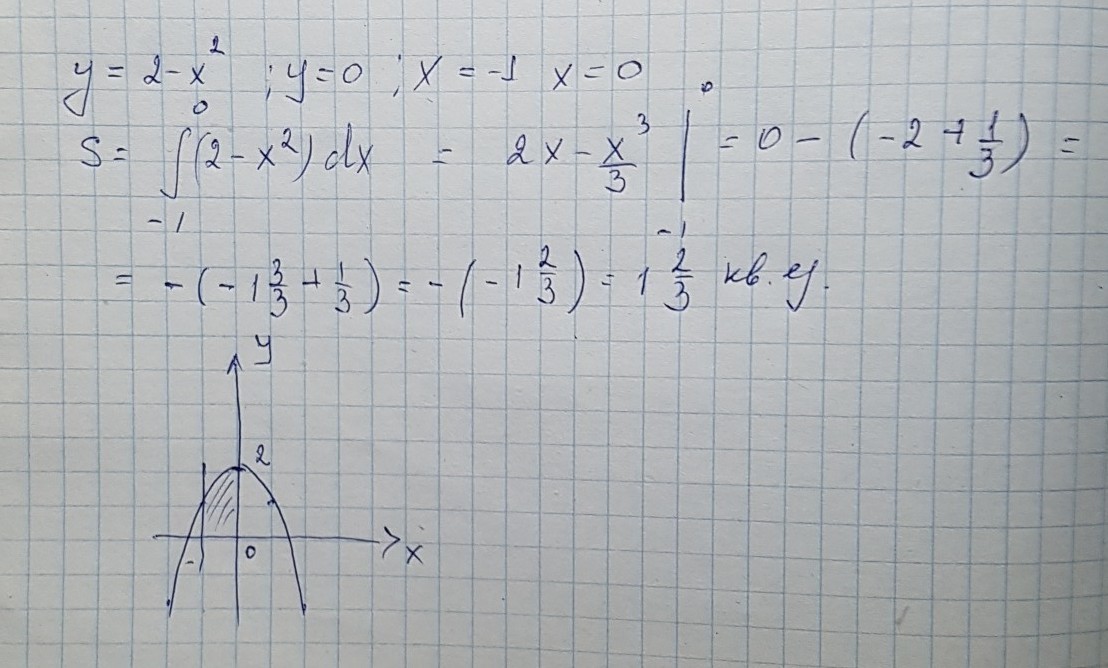 y = 2 - x² ; y = 0 ; x = -1 x = 0
S = ∫₋₁⁰ (2 - x²) dx = 2x - x³/3 |₋₁⁰ = 0 - (-2 + 1/3) =
= - (-1 3/3 + 1/3) = - (-1 2/3) = 1 2/3 кв. ед.
y
2
-1 0 x